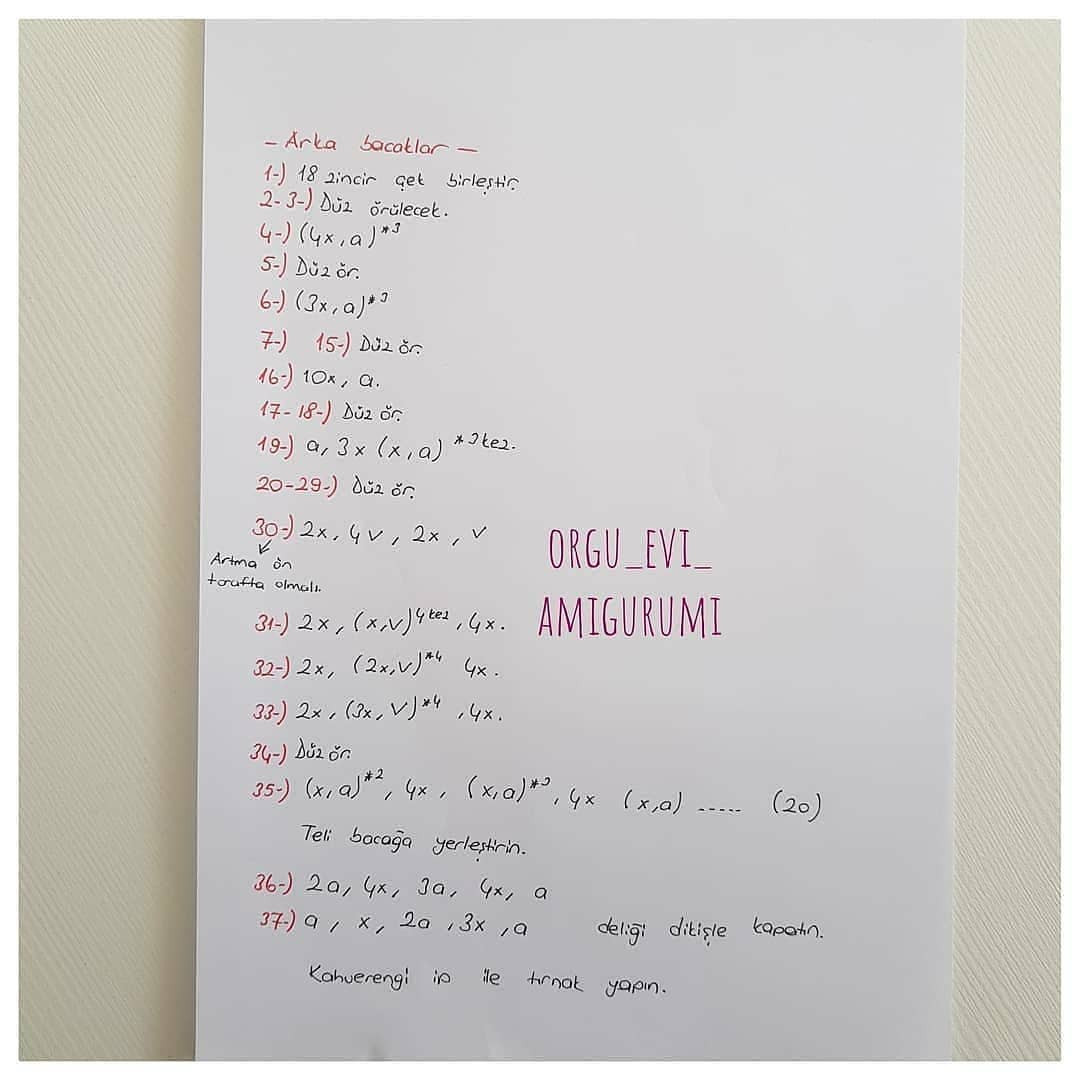 - Arka bacaklar -
1-) 18 zincir çek birleştir.
2-3-) Düz örülecek.
4-) (4x, a)*3
5-) Düz ör.
6-) (3x, a)*3
7-) 15-) Düz ör.
16-) 10x, a.
17-18-) Düz ör.
19-) a, 3x (x, a) *3 kez.
20-29-) Düz ör.
30-) 2x, 4v, 2x, v
Artma ön
tarafta olmalı.
31-) 2x, (x,v)4 kez, 4x.
32-) 2x, (2x,v)*4 4x.
33-) 2x, (3x, v)*4, 4x.
34-) Düz ör.
35-) (x,a)*2, 4x, (x,a)*3, 4x (x,a) ..... (20)
Teli bacağa yerleştirin.
36-) 2a, 4x, 3a, 4x, a
37-) a, x, 2a, 3x, a deliği dikişle kapatın.
Kahverengi ip ile tırnak yapın.
ORGU_EVI_
AMIGURUMI